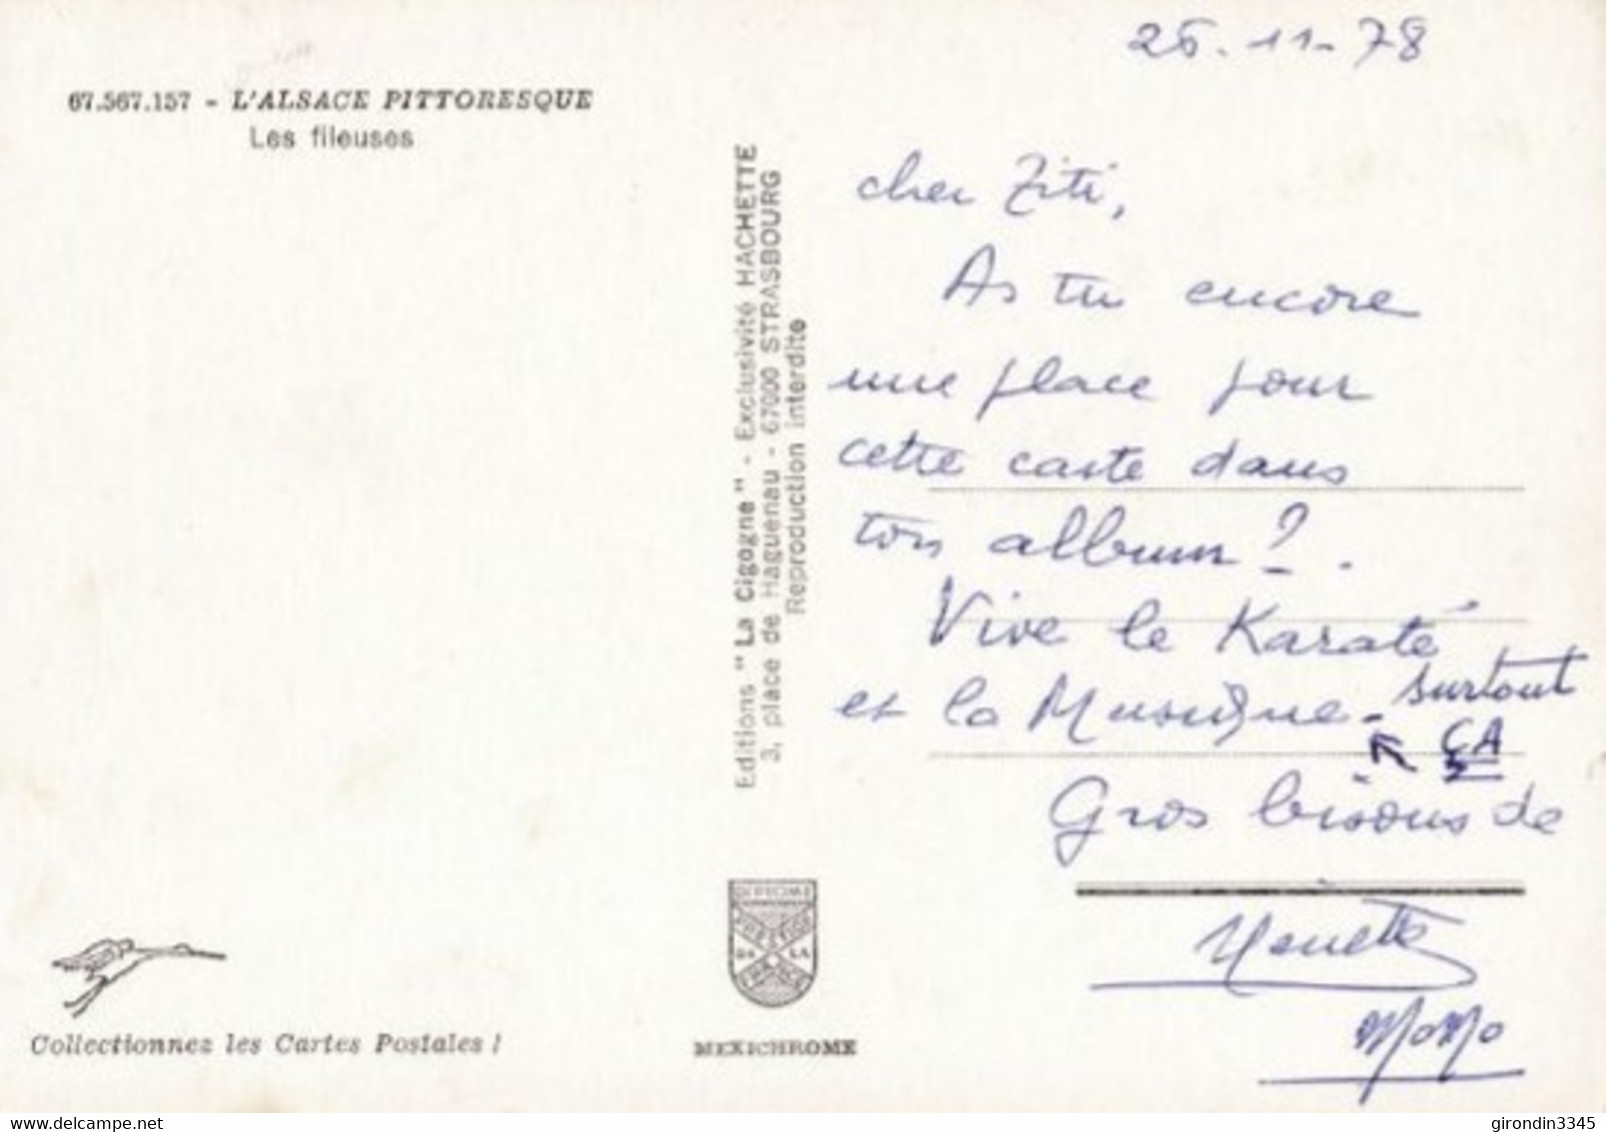 26.11-78
67.567.157 - L'ALSACE PITTORESQUE
Les fileuses
Editions "La Cigogne" - Exclusivité HACHETTE
3, place de Haguenau - 67000 STRASBOURG
Reproduction interdite
cher Ziti,
As tu encore
une place pour
cette carte dans
ton album ? .
Vive le Karaté
et la Musique - surtout
ÇA
Gros bisous de
MoMo
Collectionnez les Cartes Postales !
MEXICHROME
delcampe.net
girondin3345